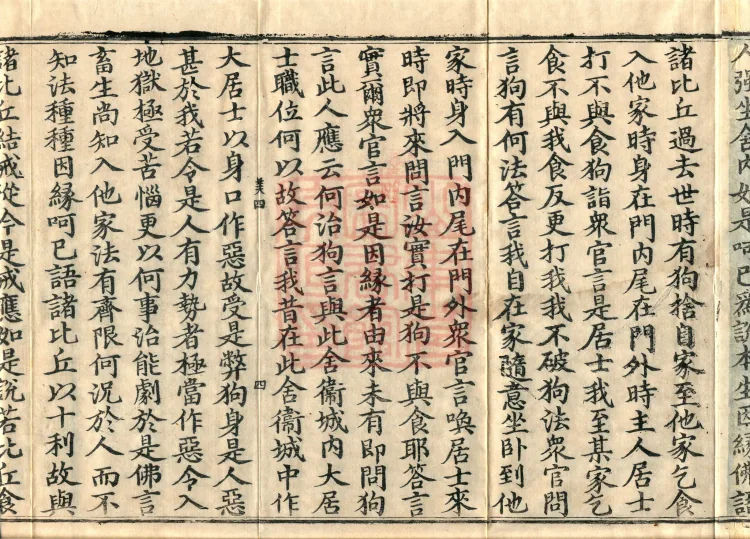 人強坐舍內如是呵已爲說本生因緣佛語
諸比丘過去世時有狗捨自家至他家乞食
入他家時身在門內尾在門外時主人居士
打不與食狗詣衆官言是居士我至某家乞
食不與我食反更打我我不破狗法衆官問
言狗有何法答言我自在家隨意坐卧到他
家時身入門內尾在門外衆官言喚居士來
時即將來問言汝實打是狗不與食耶答言
實爾衆官言如是因緣者由來未有即問狗
言此人應云何治狗言與此舍衞城內大居
士職位何以故答言我昔在此舍衞城中作
四
大居士以身口作惡故受是弊狗身是人惡
甚於我若令是人有力勢者極當作惡令入
地獄極受苦惱更以何事治能劇於是佛言
畜生尚知入他家法有齊限何況於人而不
知法種種因緣呵已語諸比丘以十利故與
諸比丘結戒從今是戒應如是說若比丘食